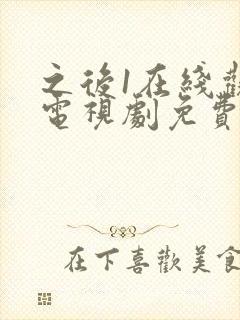 之後1在綫
電視劇免費
在下喜歡美食